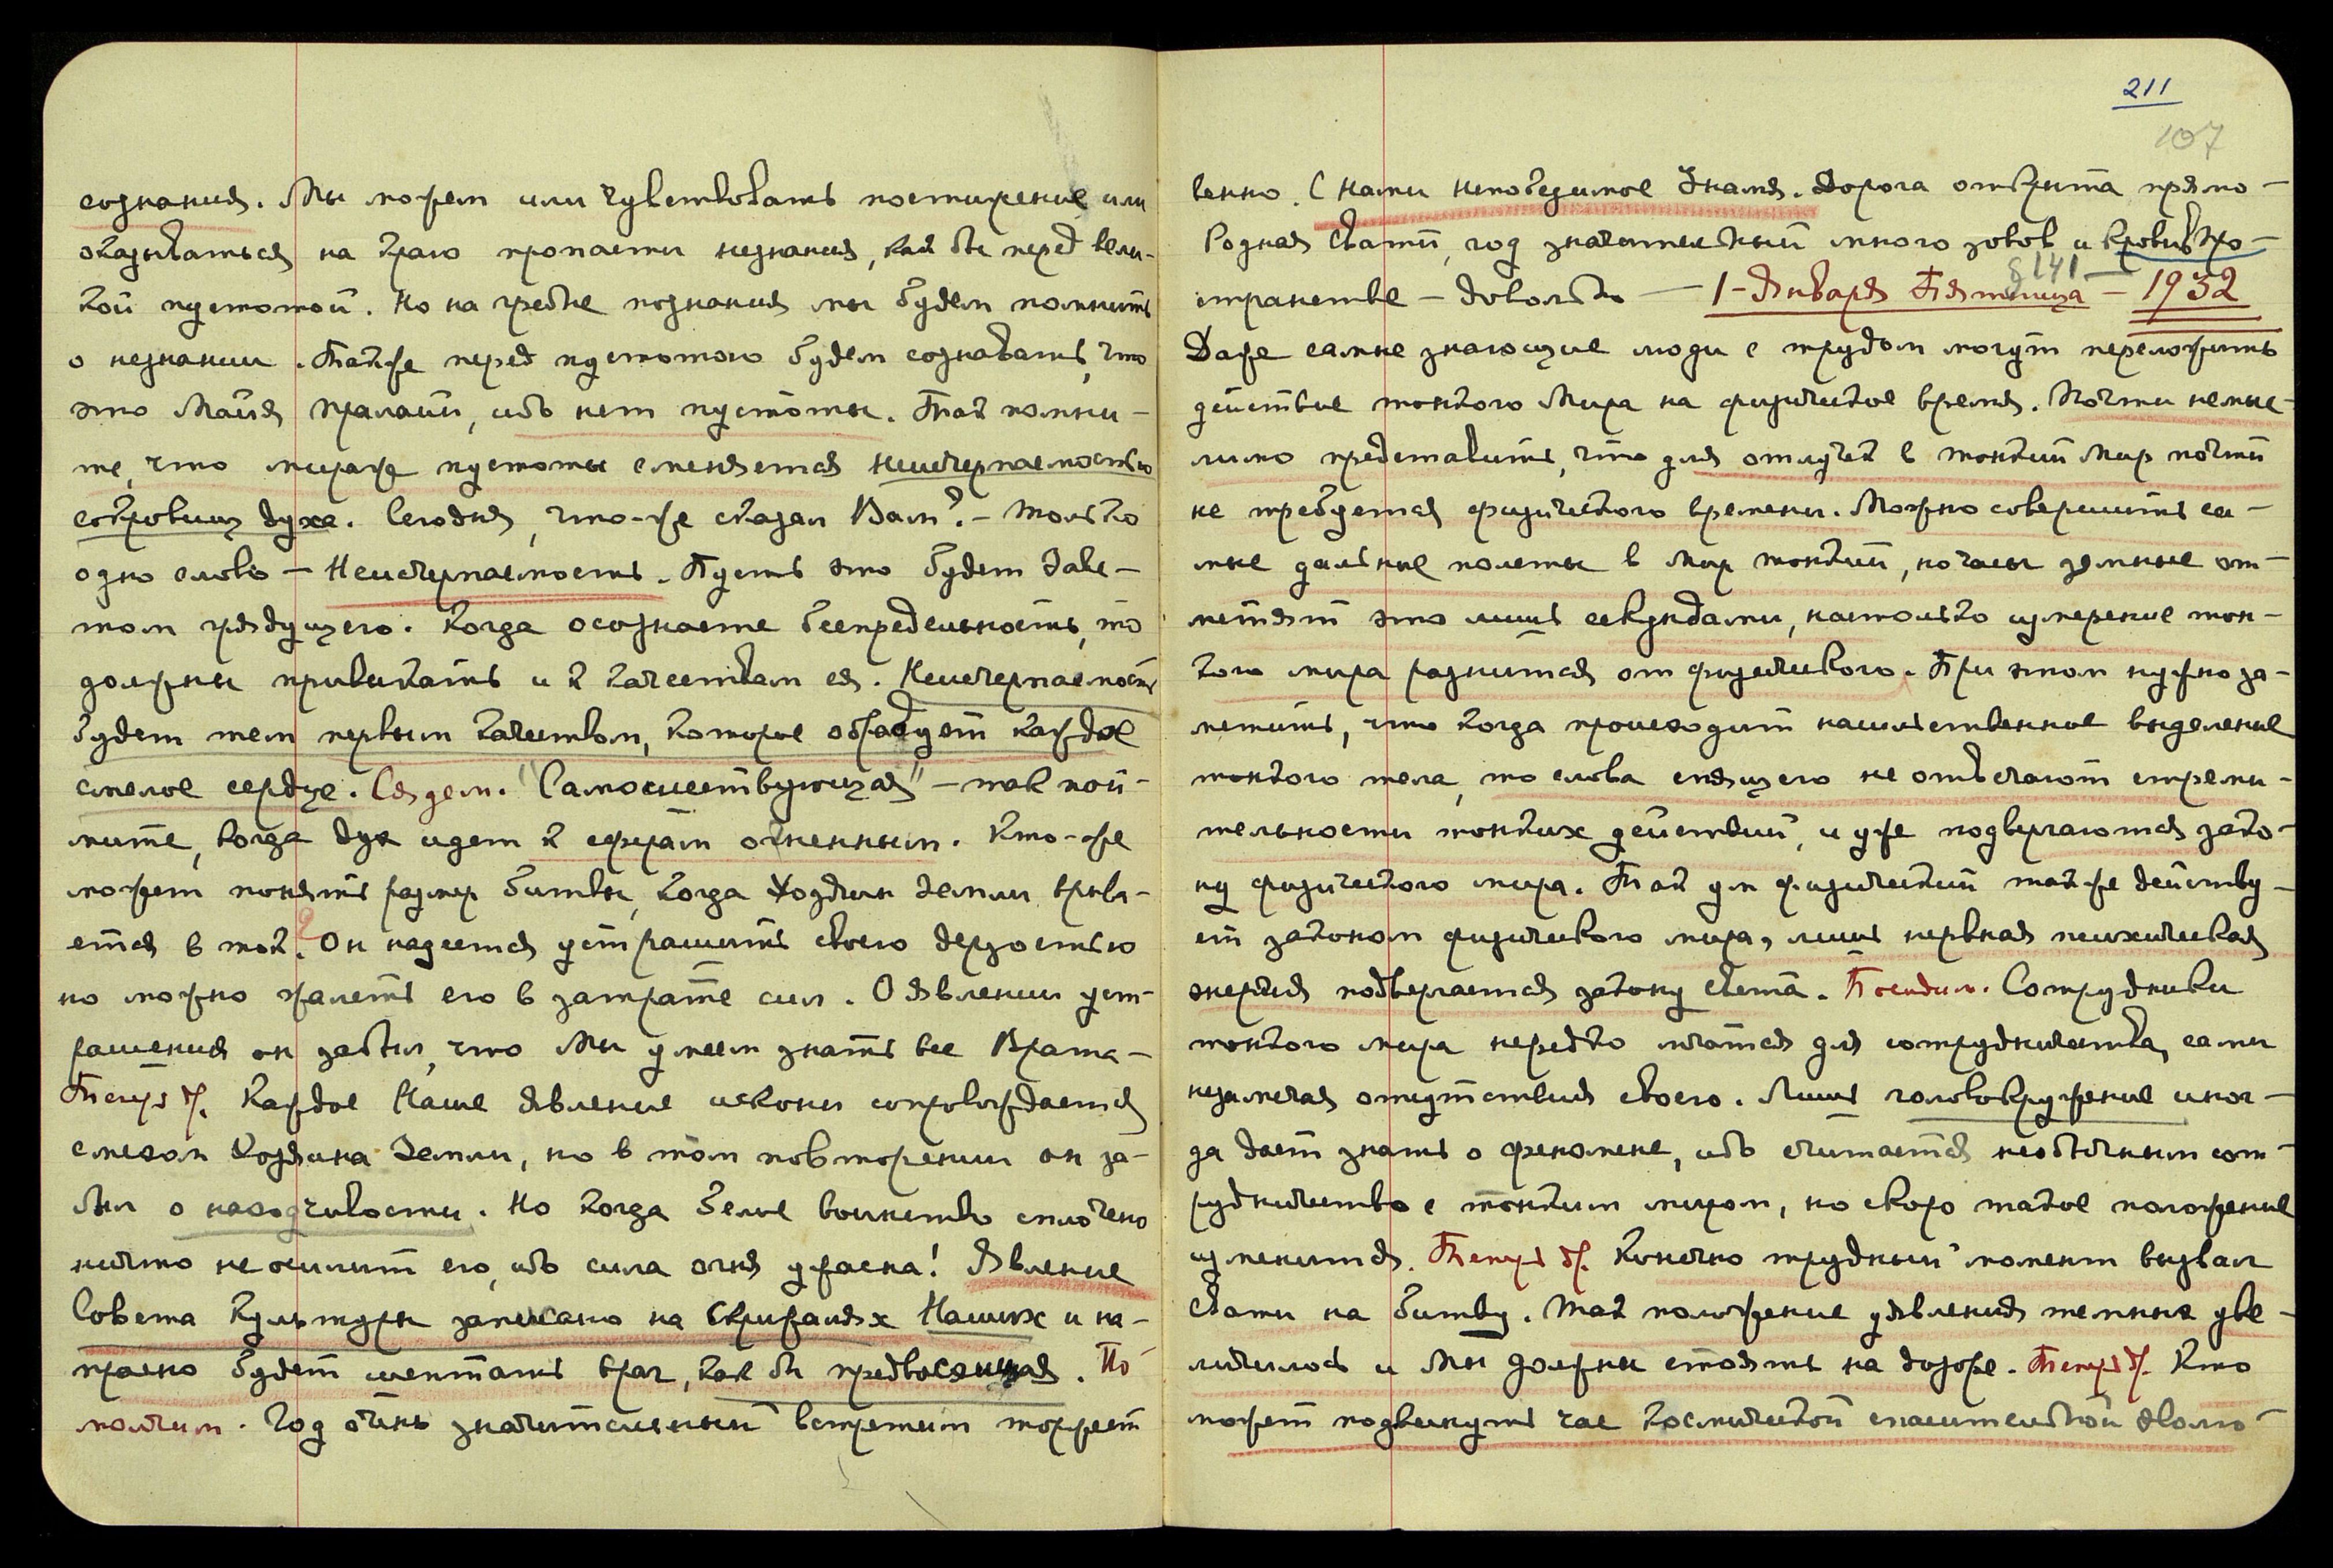 сознания. Мы можем или чувствовать постижение или
оказываться на краю пропасти незнания, как бы перед вели-
кой пустотой. Но на гребне познания мы будем помнить
о незнании. Также перед пустотою будем сознавать, что
это Майя Пралайи, ибо нет пустоты. Так помни-
те, что мираж пустоты сменяется неисчерпаемостью
сокровищ духа. Сегодня, что-же сказал Вам? - Только
одно слово — Неисчерпаемость. Пусть это будет Заве-
том грядущего. Когда осознаете Беспредельность, то
должны привыкать и к качествам ея. Неисчерпаемость
будет тем первым качеством, которое обрадует каждое
смелое сердце. Сядем. "Самошествующая" — так пой-
мите, когда дух идет к сферам огненным. Кто-же
может понять размер битвы, когда Хозяин Земли врыва-
ется в ток? Он надеется устрашить своею дерзостью
но можно жалеть его в затрате сил. О явлении уст-
рашения он забыл, что Мы умеем знать все Врата —
Теперь др. Каждое Наше явление искони сопровождается
смехом Хозяина Земли, но в том повторении он за-
был о находчивости. Но когда Белое воинство сплочено
ничто не осилит его, ибо сила огня ужасна! Явление
Совета Культуры записано на Скрижалях Наших и на-
прасно будет шептать враг, как бы предвосхищая. По-
молчим. Год очень значительный встретим торжест
211
107
венно. С нами непобедимое Знамя. Дорога открыта прямо —
Родная Свати, год значительный много зовов и кровь в про-
8141
странстве — довольно — 1 - Января Пятница — 1932
Даже самые знающие люди с трудом могут переложить
действие тонкого Мира на физическое время. Почти немые-
лимо представить, что для отлучек в тонкий Мир почти
не требуется физического времени. Можно совершить са-
мые дальние полеты в Мир тонкий, но часы земные от-
метят это лишь секундами, настолько измерение тон-
кого мира разнится от физического. При этом нужно за-
метить, что когда происходит насильственное выделение
тонкого тела, то слова спящего не отвечают стреми-
тельности тонких действий, и уже подвергаются зако-
ну физического мира. Так ум физический также действу-
ет законом физического мира, лишь нервная психическая
энергия подвергается закону света. Посидим. Сотрудники
тонкого мира нередко мчатся для сотрудничества, сами
незамечая отсутствия своего. Лишь головокружение иног-
да дает знать о феномене, ибо считается необычным сот-
рудничество с тонким миром, но скоро такое положение
изменится. Теперь др. Конечно трудный момент вызвал
Свати на битву. Так положение уявления темных уве-
личилось и Мы должны стоять на дозоре. Теперь др. Кто
может подвинуть час космической спасительной эволю-